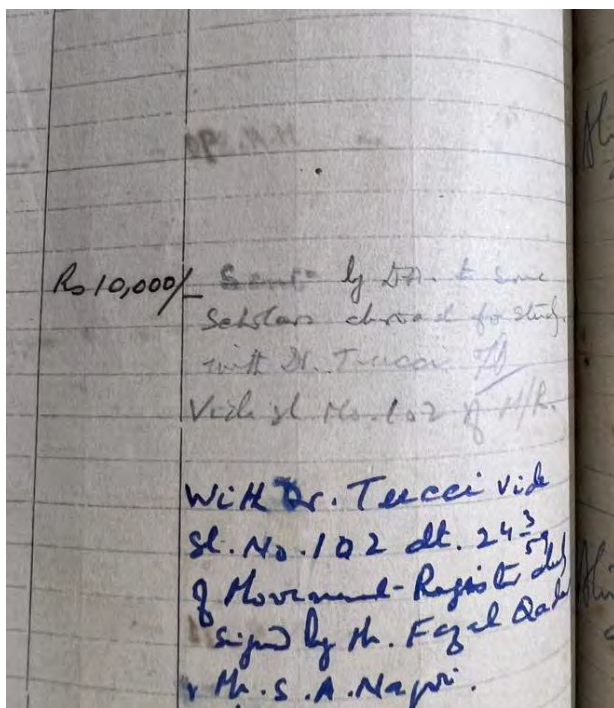 Rs 10,000/- Sent by DA. to some
Scholars abroad for study
with Dr. Tucci
Vide sl No. 102 of M/R.
With Dr. Tucci vide
Sl. No. 102 dt. 24 3/59
of Movement-Register duly
signed by Mr. Fazal Qadir
& Mr. S. A. Naqvi.